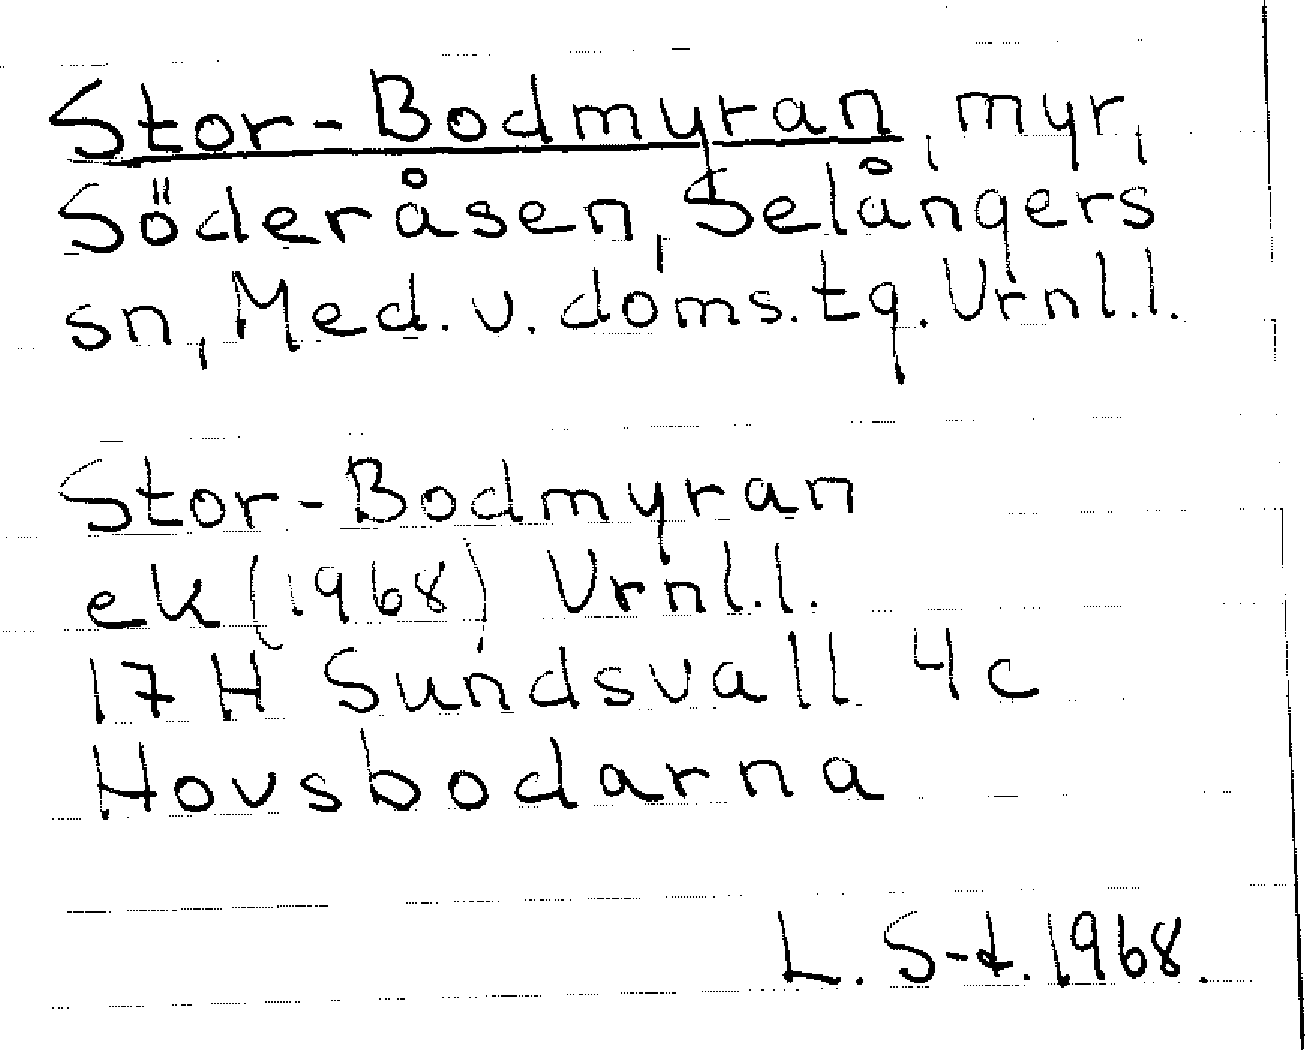 Stor-Bodmyran, myr,
Söderåsen, Selångers
sn, Med. v. doms. tg. Vrnl.l.
Stor-Bodmyran
ek (1968) Vrnl.l.
17 H Sundsvall 4c
Hovsbodarna
L. S-t. 1968.